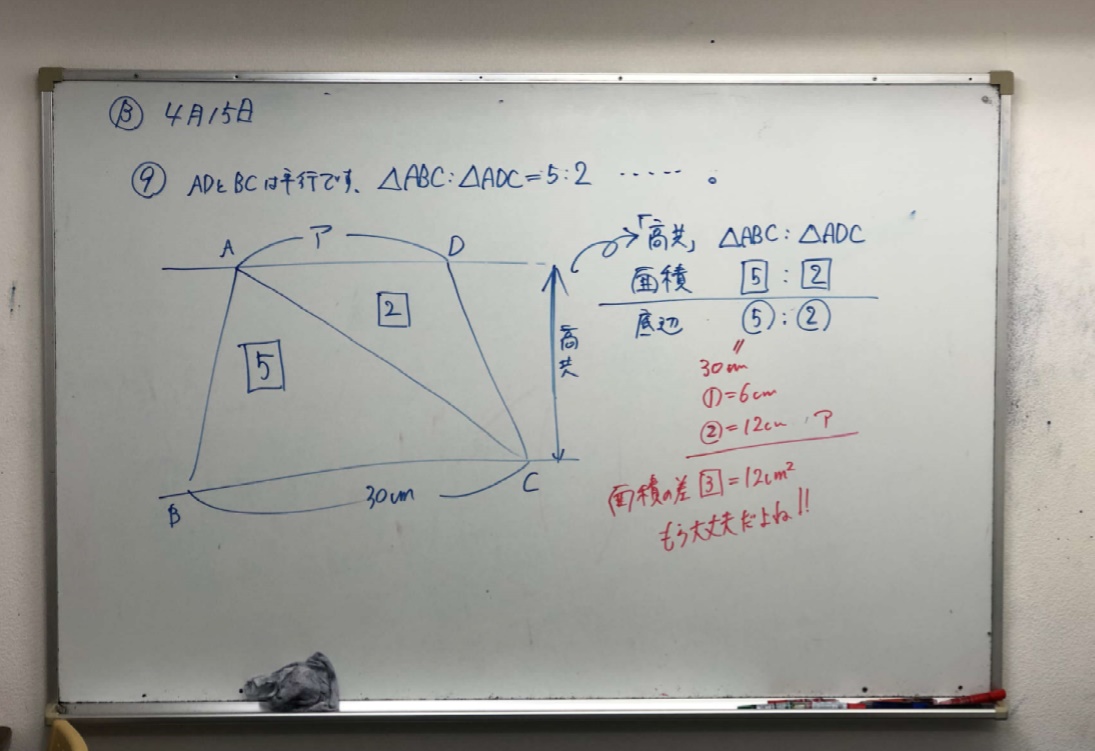 Ⓑ 4月15日
⑨ ADとBCは平行です、△ABC:△ADC=5:2 ‥‥‥ 。
A ア D
2
5
高共
B 30cm C
「高共」 △ABC:△ADC
面積 5 : 2
底辺 ⑤:②
〃
30cm
①=6cm
②=12cm ア
面積の差 3=12cm²
もう大丈夫だよね!!